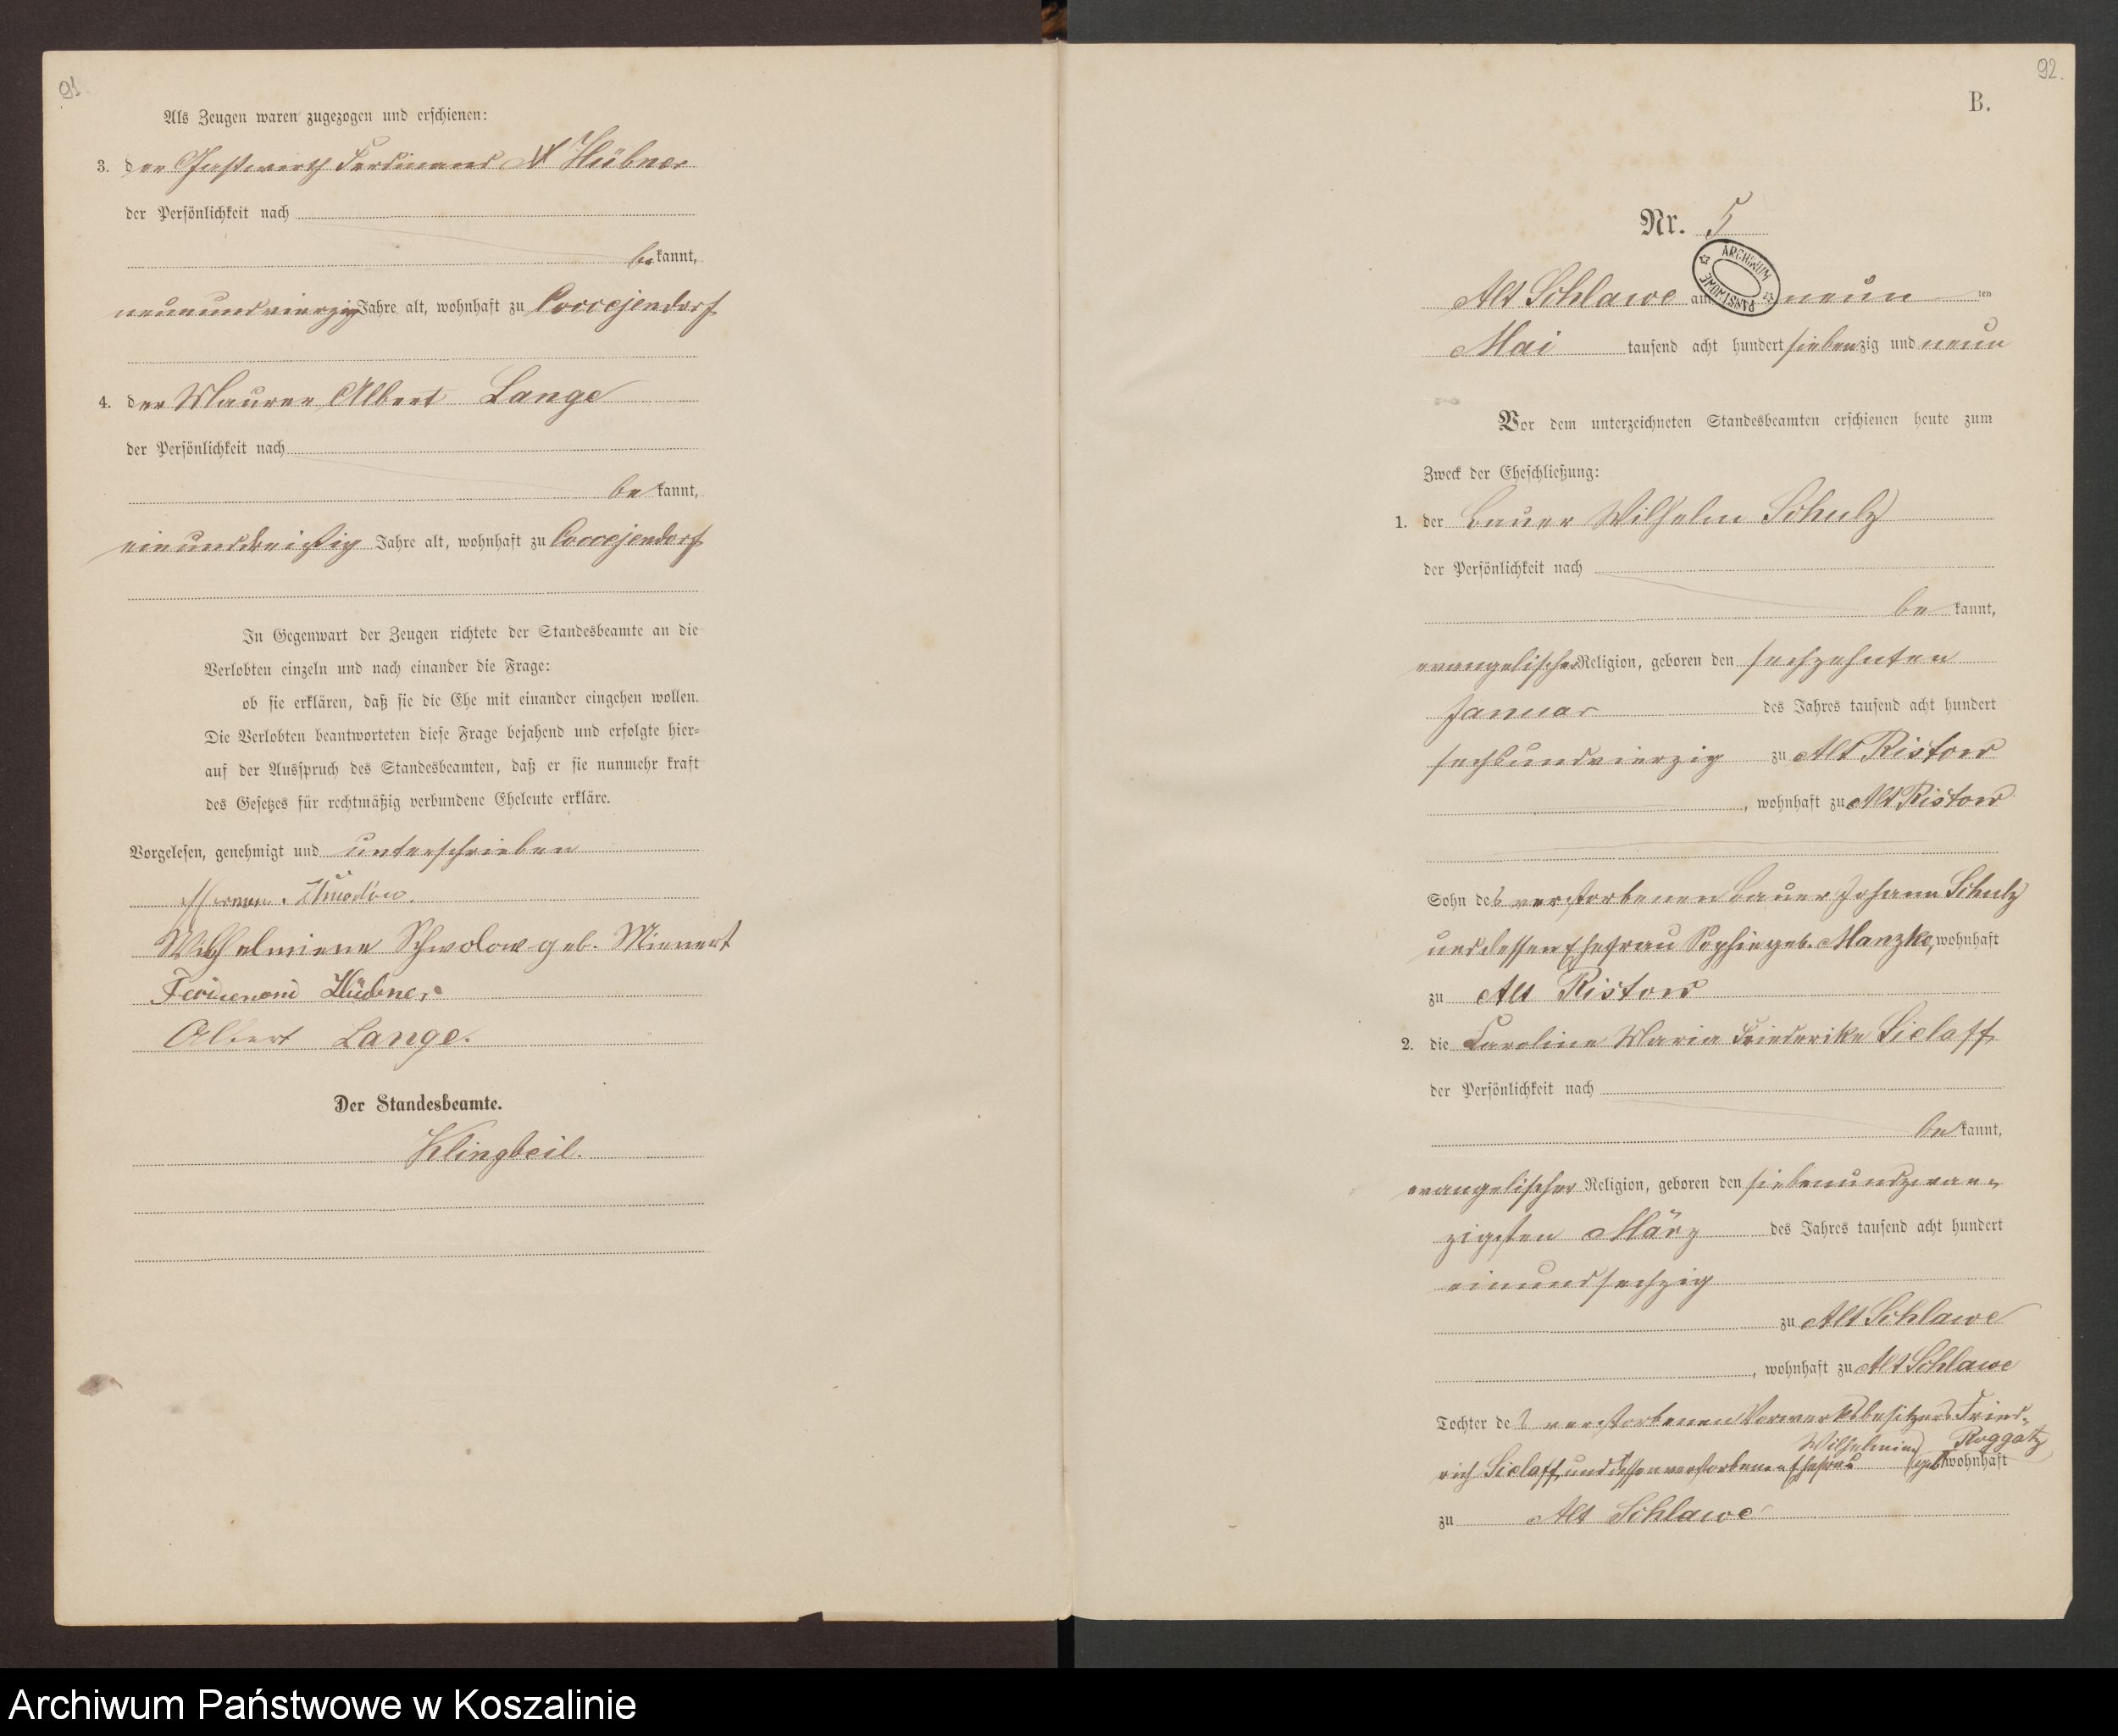 91.
Als Zeugen waren zugezogen und erschienen:
3. der Gastwirth Ferdinand Hübner
der Persönlichkeit nach
bekannt,
neunundvierzig Jahre alt, wohnhaft zu Coccejendorf
4. der Maurer Albert Lange
der Persönlichkeit nach
bekannt,
einunddreißig Jahre alt, wohnhaft zu Coccejendorf
In Gegenwart der Zeugen richtete der Standesbeamte an die
Verlobten einzeln und nach einander die Frage:
ob sie erklären, daß sie die Ehe mit einander eingehen wollen.
Die Verlobten beantworteten diese Frage bejahend und erfolgte hier-
auf der Ausspruch des Standesbeamten, daß er sie nunmehr kraft
des Gesetzes für rechtmäßig verbundene Eheleute erkläre.
Vorgelesen, genehmigt und unterschrieben
Wilhelmiene Schwolow geb. Mienert
Ferdienand Hübner
Albert Lange.
Der Standesbeamte.
Klingbeil.
92.
B.
Nr. 5
ARCHIWUM PAŃSTWOWE
Alt Schlawe am neun ten
Mai tausend acht hundert siebenzig und neun
Vor dem unterzeichneten Standesbeamten erschienen heute zum
Zweck der Eheschließung:
1. der Bauer Wilhelm Schulz
der Persönlichkeit nach
bekannt,
evangelischer Religion, geboren den sechzehnten
Januar des Jahres tausend acht hundert
sechsundvierzig zu Alt Ristow
, wohnhaft zu Alt Ristow
Sohn des verstorbenen Bauer Johann Schulz
und dessen Ehefrau Sophie geb. Manzke, wohnhaft
zu Alt Ristow
2. die Caroline Maria Friederike Sielaff
der Persönlichkeit nach
bekannt,
evangelischer Religion, geboren den siebenundzwan-
zigsten März des Jahres tausend acht hundert
einundsechzig
zu Alt Schlawe
, wohnhaft zu Alt Schlawe
Tochter des verstorbenen Vorwerksbesitzers Fried-
rich Sielaff, und dessen verstorbenen Ehefrau Wilhelmine geb. Roggatz wohnhaft
zu Alt Schlawe
Archiwum Państwowe w Koszalinie